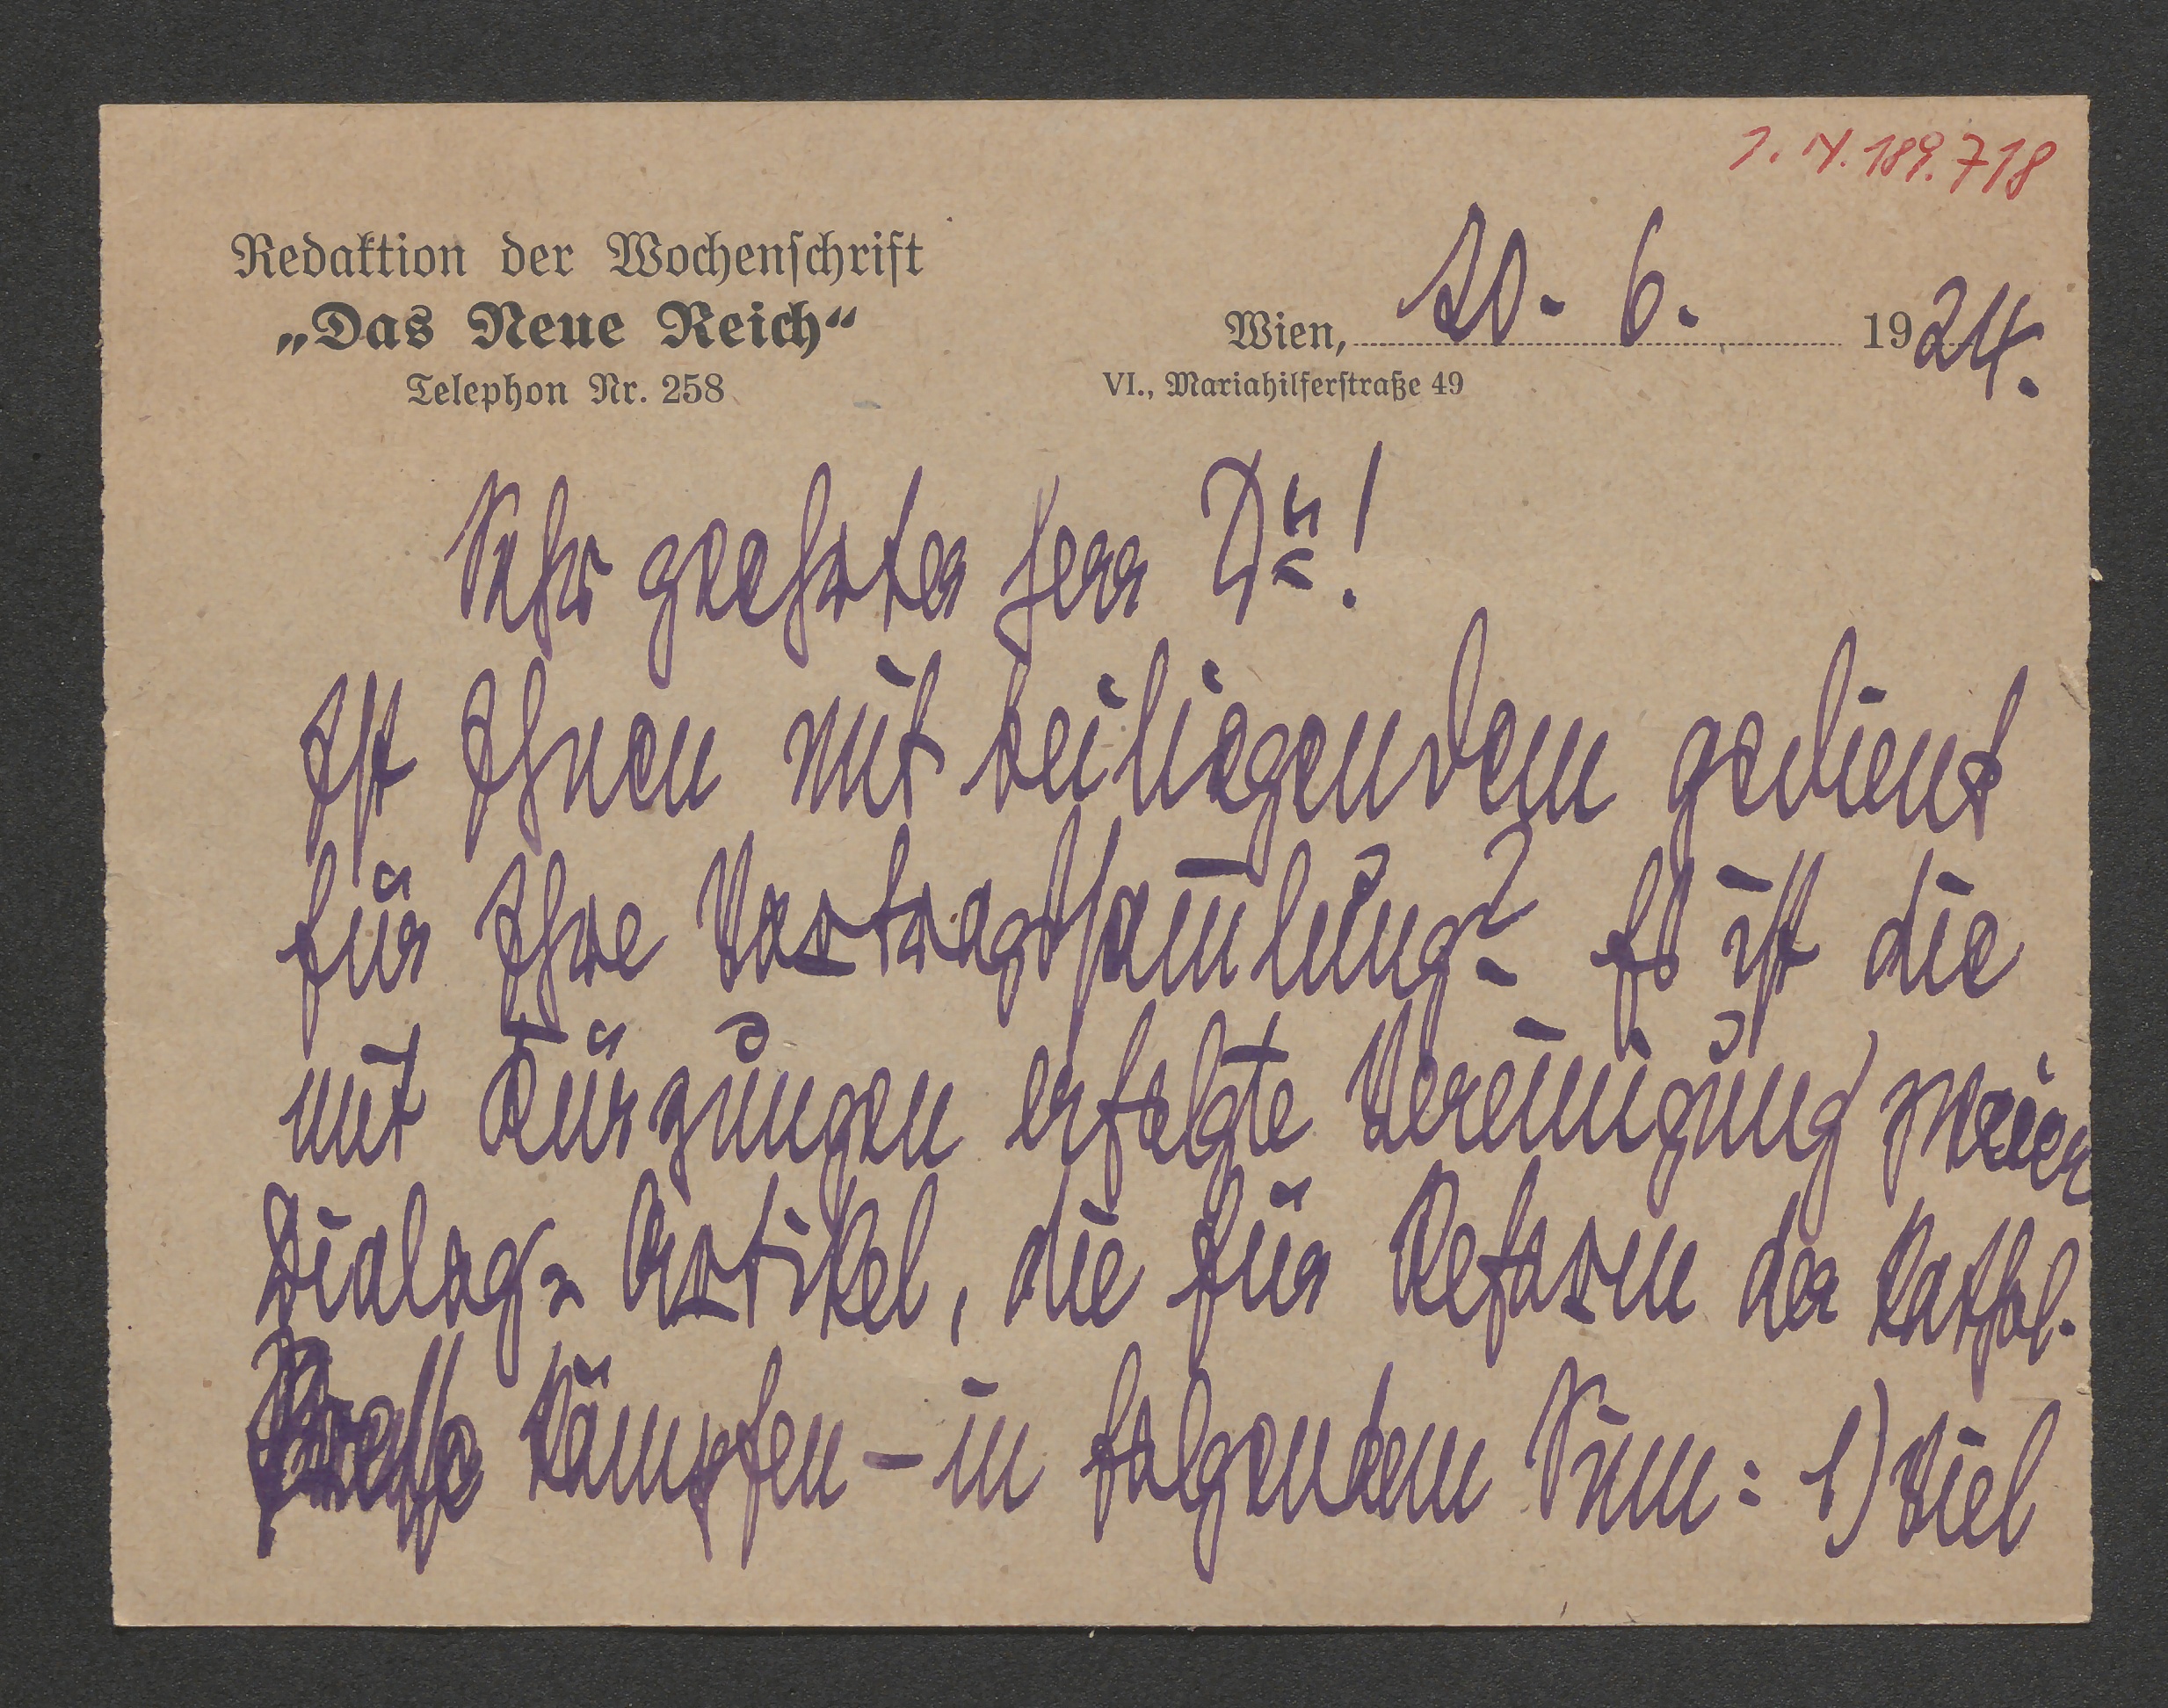 I. N. 189.718
Redaktion der Wochenschrift
„Das Neue Reich“
Telephon Nr. 258
Wien, 20. 6. 1924.
VI., Mariahilferstraße 49
Sehr geehrter Herr Dr!
Ist Ihnen mit beiliegendem gedient
für Ihre Vortragssam̅lung? Es ist die
mit Kürzungen erfolgte Vereinigung zweier
Dialog= Artikel, die für Reform der kathol.
Presse kämpfen – in folgendem Sinn: 1) Viel